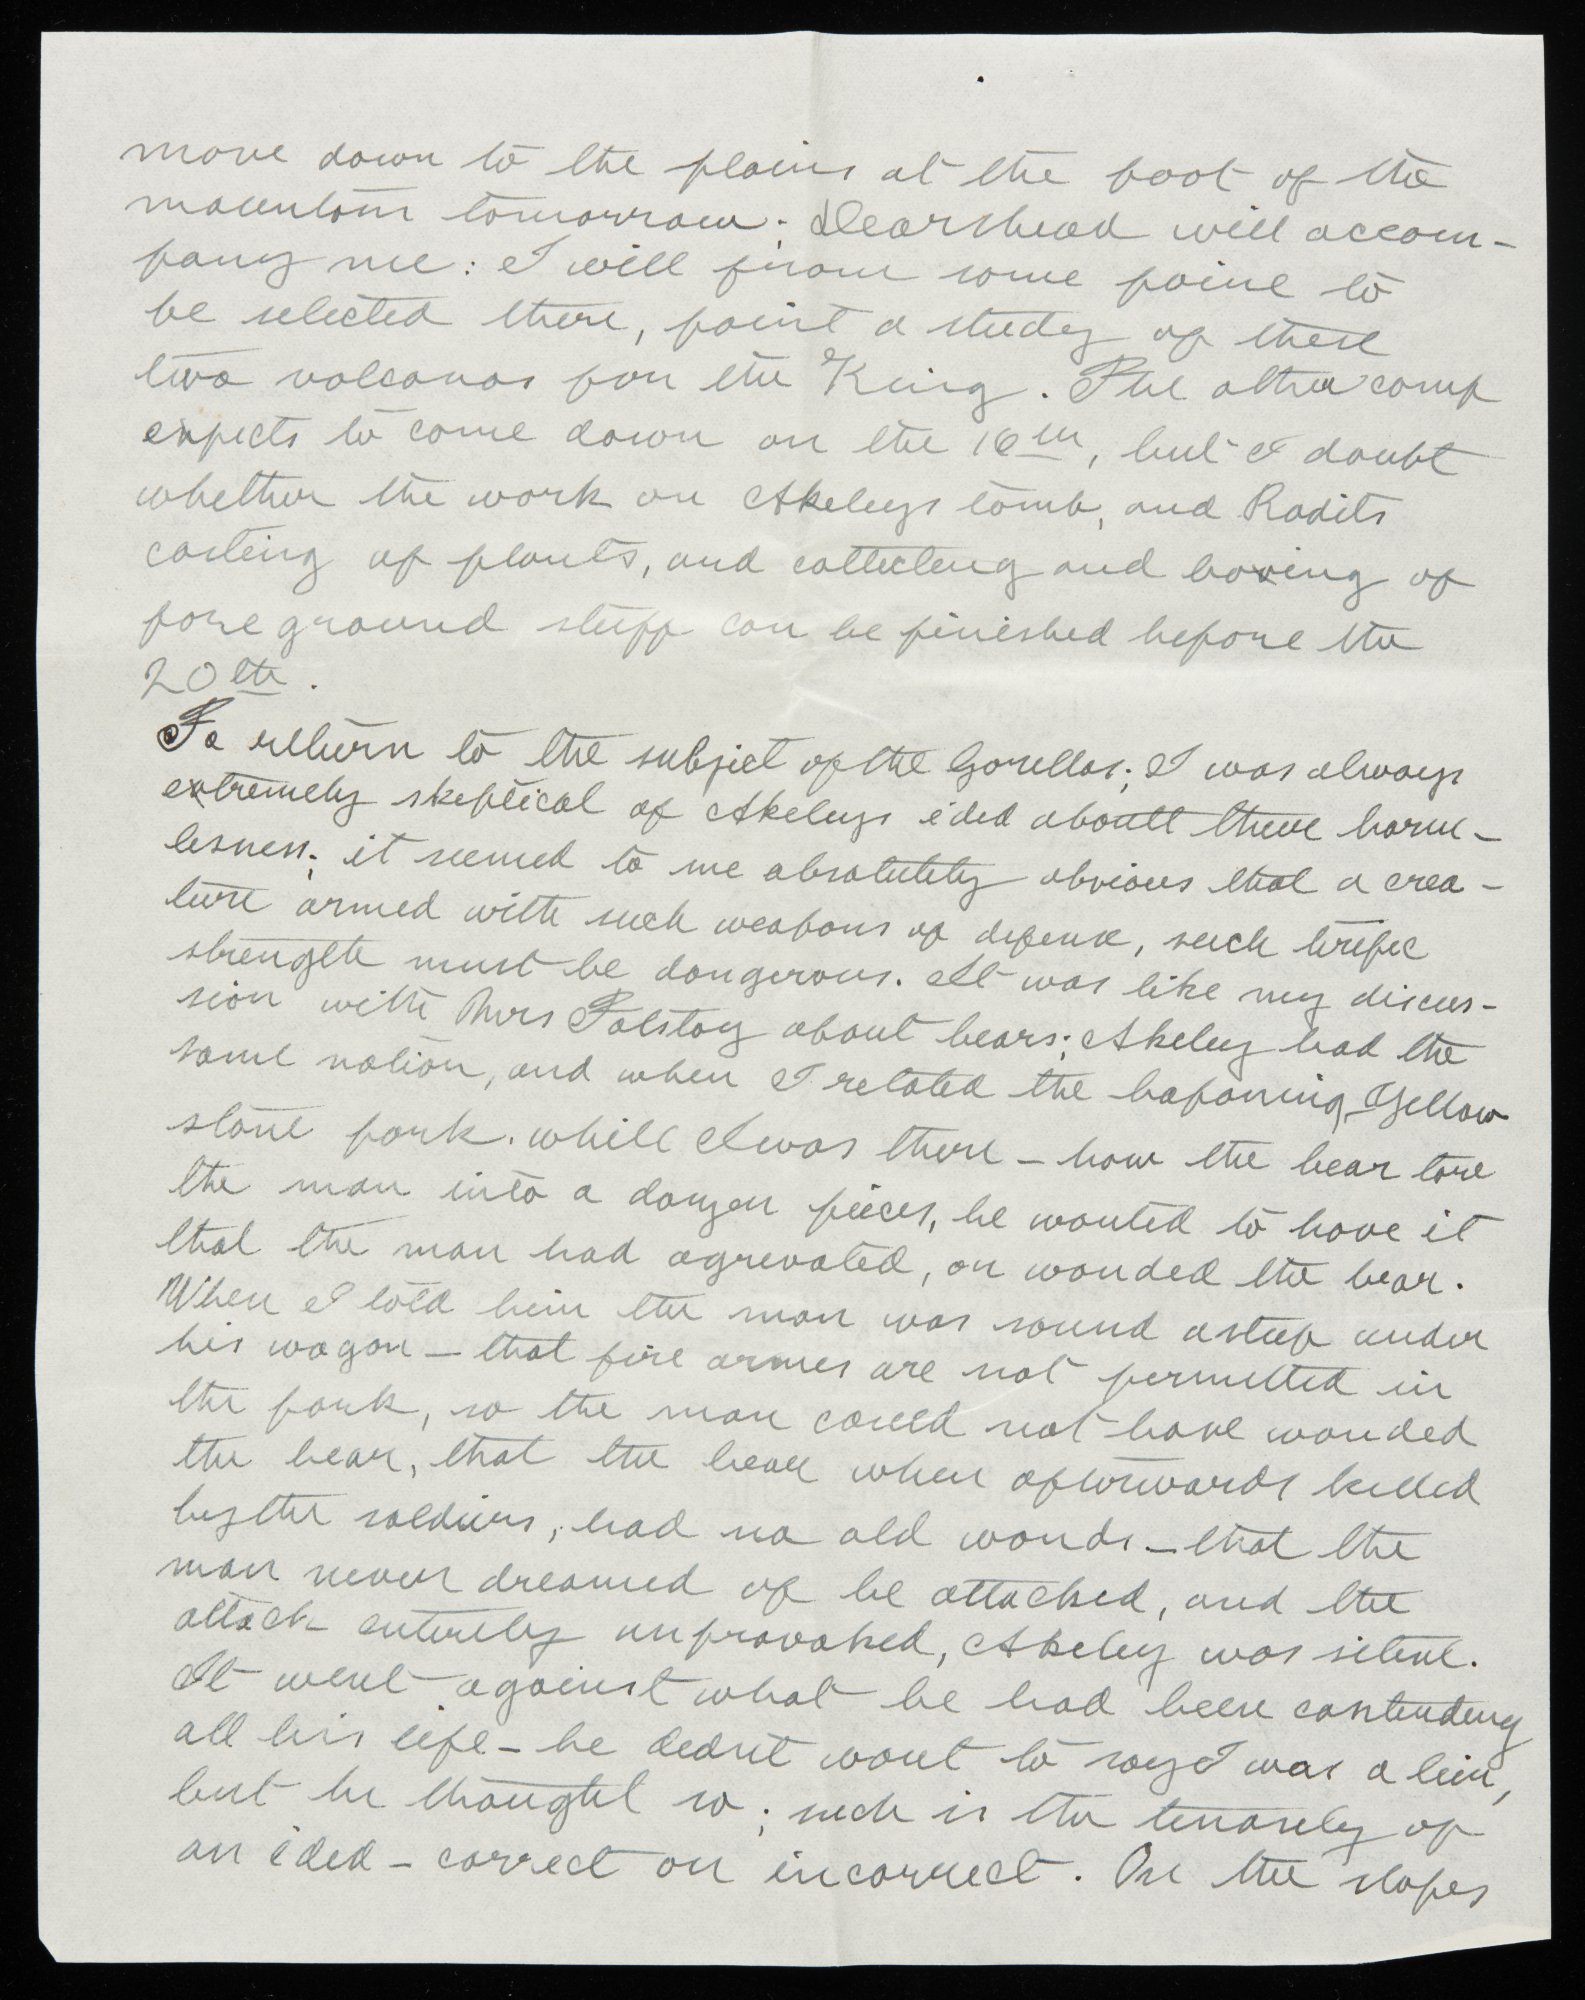 move down to the plains at the foot of the
mountain tomorrow; Dearshead will accom-
pany me: I will from some point to
be selected there, paint a study of these
two volcanos for the King. The other camp
expects to come down on the 16th, but I doubt
whether the work on Akeleys tomb, and Radits
casting of plants, and collecting and boxing of
fore ground stuff can be finished before the
20th.
To return to the subject of the Gorellas; I was always
extremely skeptical of Akeleys idea aboutt there harm-
lesness; it seemed to me absolutely obvious that a crea-
ture armed with such weapons of defense, such terific
strength must be dangerous. It was like my discus-
sion with Mrs Tolstoy about bears; Akeley had the
same notion, and when I related the hapaning Yellow
stone park. while I was there - how the bear tore
the man into a dozen pieces, he wanted to have it
that the man had agrevated, or wonded the bear.
When I told him the man was sound asleep under
his wagon - that fire armes are not permitted in
the park, so the man could not have wonded
the bear, that the bear when afterwards killed
by the soldiers, had no old wonds - that the
man never dreamed of be attacked, and the
attack entirely unprovoked, Akeley was silent.
It went against what he had been contending
all his life - he dednt want to say I was a liar,
but he thought so; such is the tenasety of
an idea - correct or incorrect. On the slopes